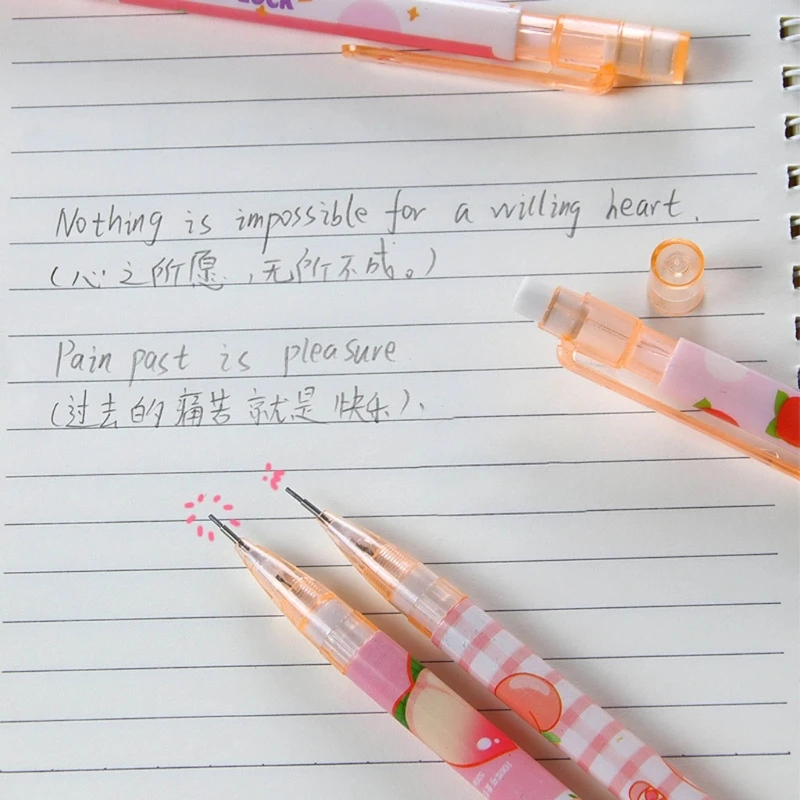 LUCK
Nothing is impossible for a willing heart.
(心之所愿,无所不成。)
Pain past is pleasure
(过去的痛苦就是快乐).